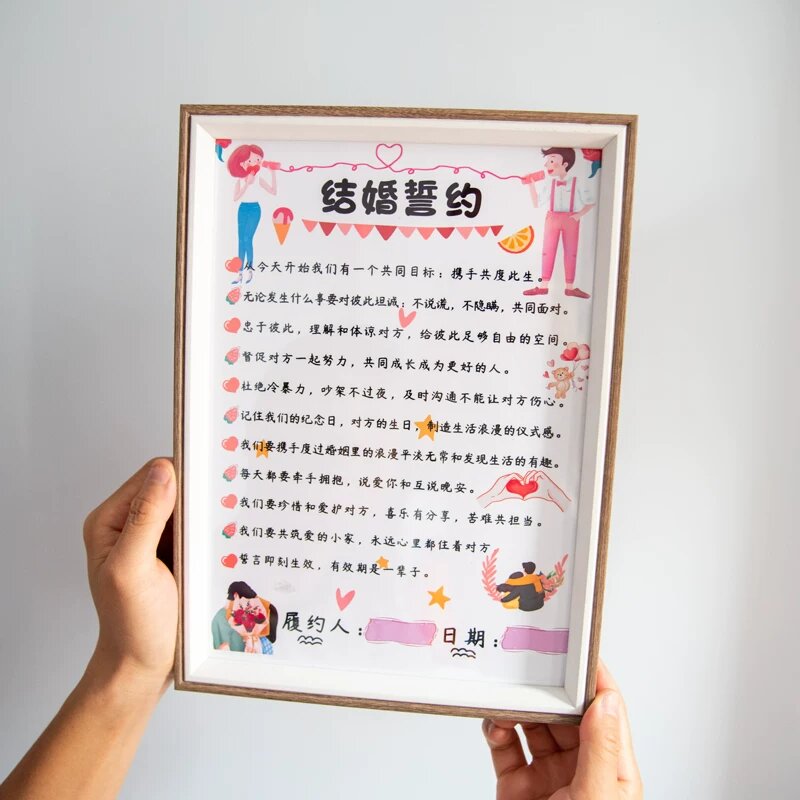 结婚誓约
从今天开始我们有一个共同目标：携手共度此生。
无论发生什么事要对彼此坦诚：不说谎，不隐瞒，共同面对。
忠于彼此，理解和体谅对方，给彼此足够自由的空间。
督促对方一起努力，共同成长成为更好的人。
杜绝冷暴力，吵架不过夜，及时沟通不能让对方伤心。
记住我们的纪念日，对方的生日，制造生活浪漫的仪式感。
我们要携手度过婚姻里的浪漫平淡无常和发现生活的有趣。
每天都要牵手拥抱，说爱你和互说晚安。
我们要珍惜和爱护对方，喜乐有分享，苦难共担当。
我们要共筑爱的小家，永远心里都住着对方
誓言即刻生效，有效期是一辈子。
履约人： 日期：